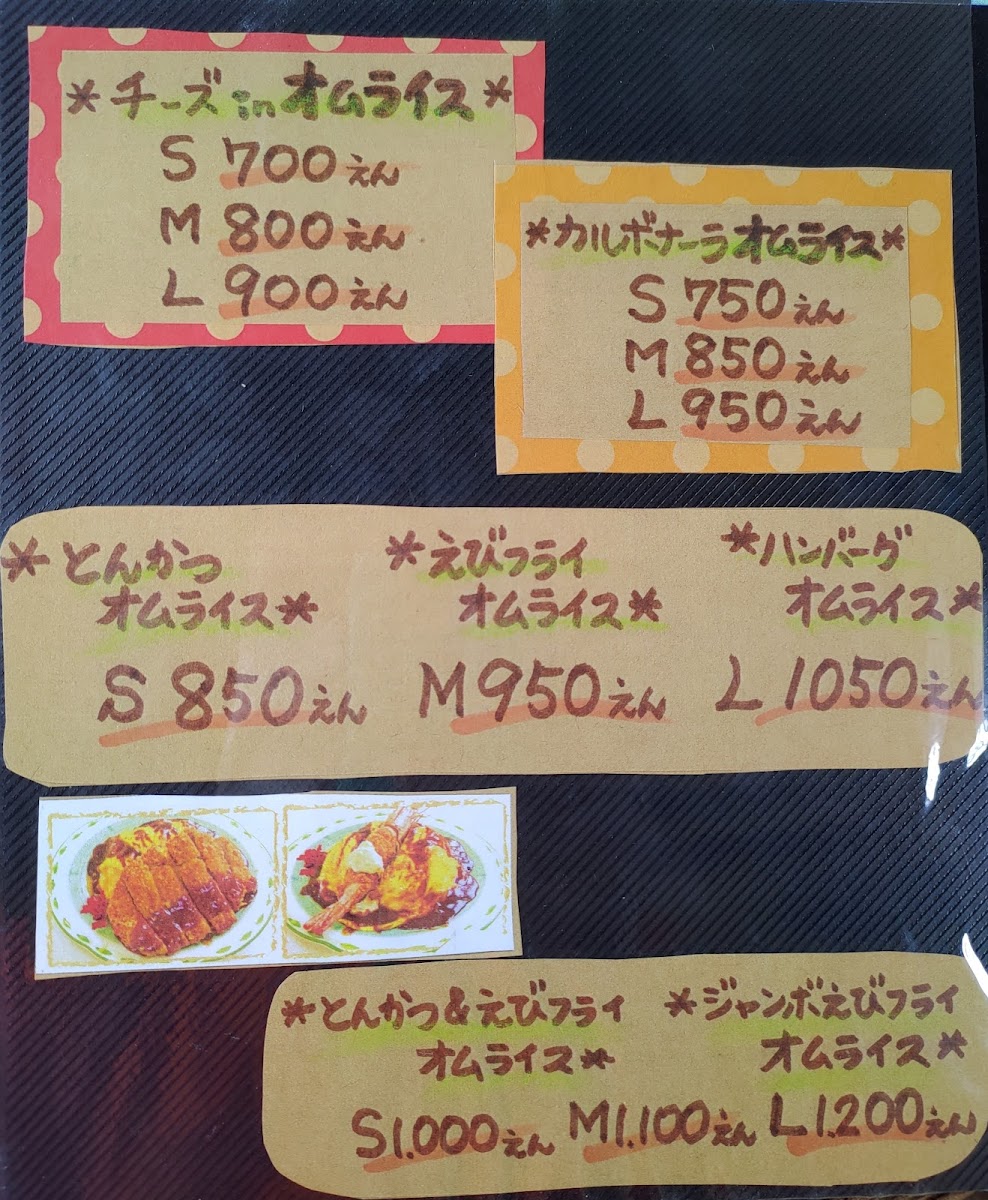 *チーズinオムライス*
S 700えん
M 800えん
L 900えん
*カルボナーラオムライス*
S 750えん
M 850えん
L 950えん
*とんかつ
オムライス*
*えびフライ
オムライス*
*ハンバーグ
オムライス*
S 850えん M 950えん L 1050えん
*とんかつ&えびフライ
オムライス*
*ジャンボえびフライ
オムライス*
S1.000えん M1.100えん L1.200えん